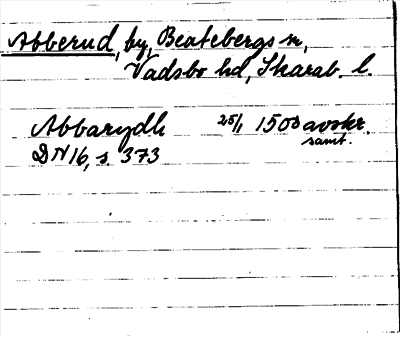 Abberud, by, Beatebergs sn,
Vadsbo hd, Skarab. l.
Abbarydh 25/1 1503 avskr.
samt.
DN 16, s. 373